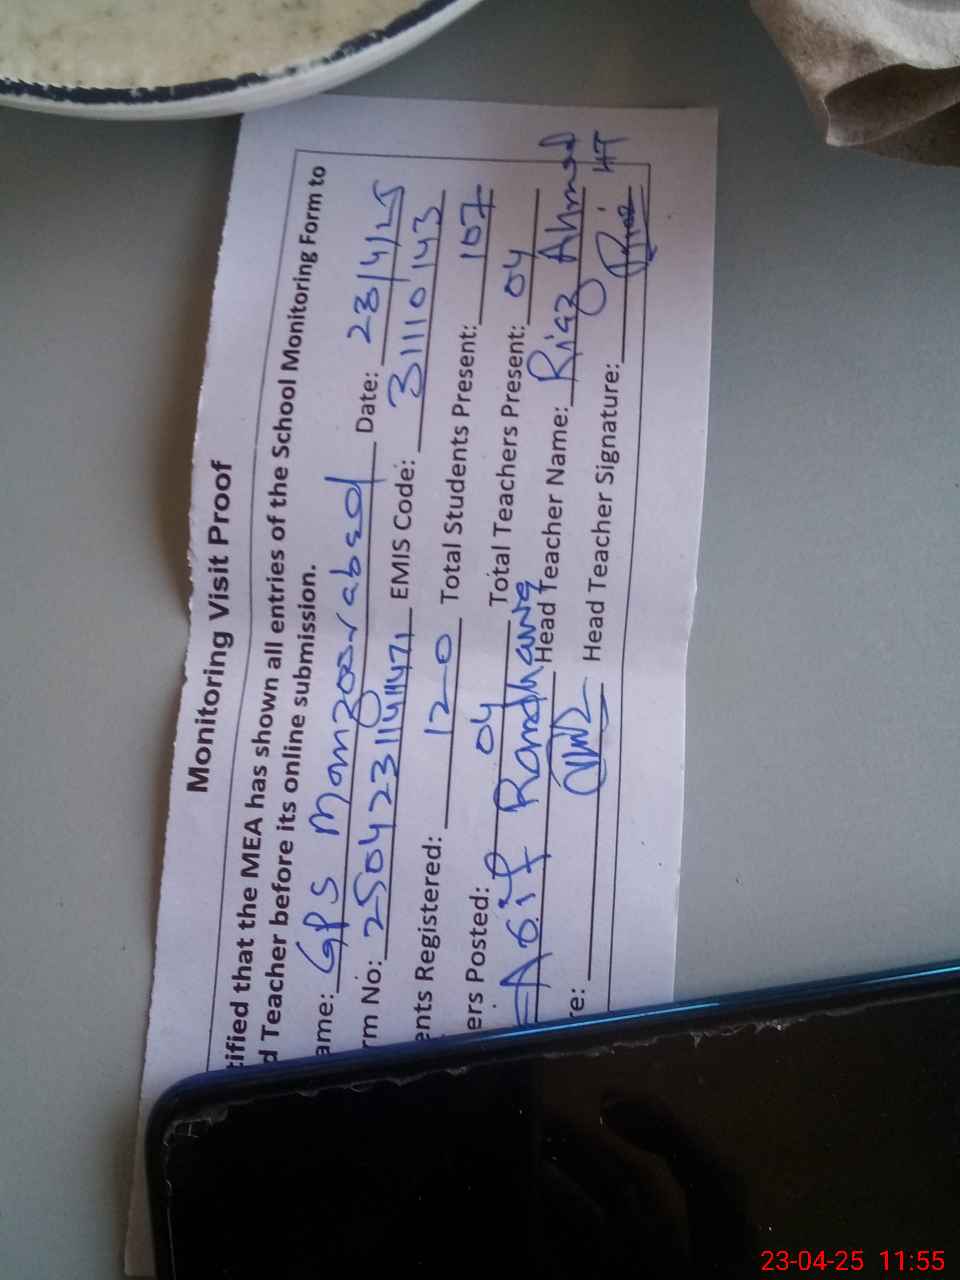 Monitoring Visit Proof
tified that the MEA has shown all entries of the School Monitoring Form to
d Teacher before its online submission.
ame: GPS Manzoorabad Date: 23/4/25
rm No: 25042311411471 EMIS Code: 31110143
ents Registered: 120 Total Students Present: 107
ers Posted: 04 Total Teachers Present: 04
Asif Randhawa Head Teacher Name: Riaz Ahmad
re: Head Teacher Signature: HT
23-04-25 11:55